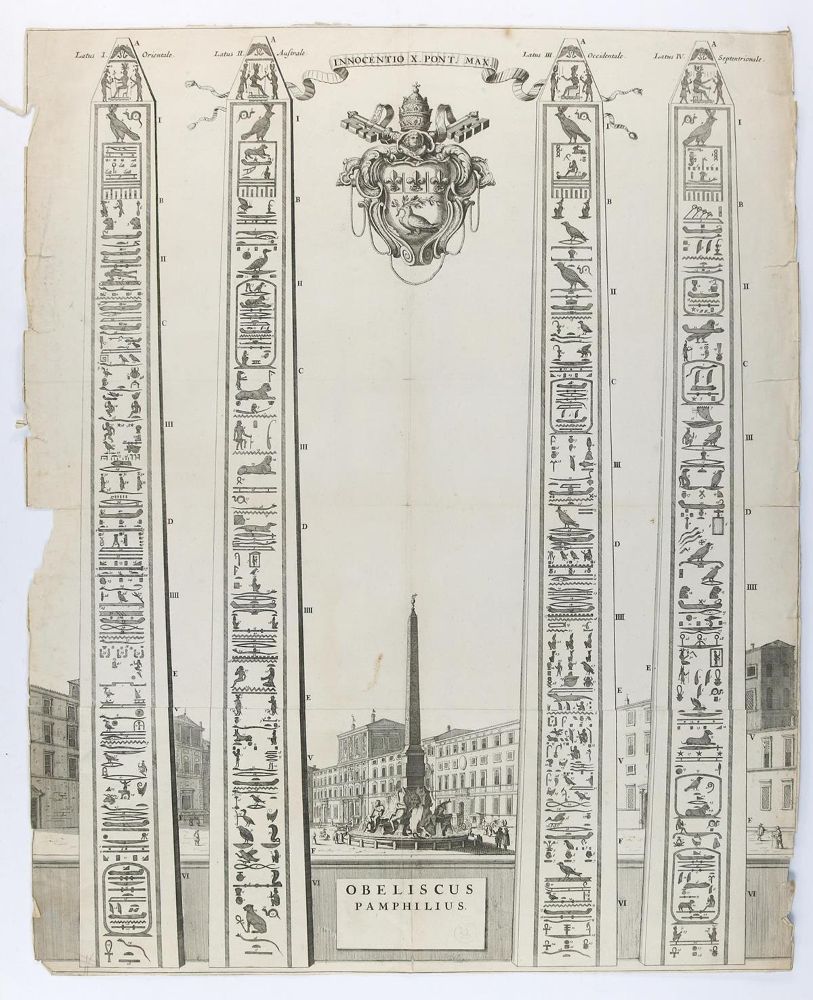 Latus I. Orientale.
Latus II Australe
INNOCENTIO X. PONT. MAX.
Latus III Occidentale.
Latus IV. Septentrionale.
A
A
A
A
I
I
I
I
B
B
B
B
II
H
II
II
C
C
C
C
III
III
III
III
D
D
D
D
IIII
IIII
IIII
IIII
E
E
E
E
V
V
V
V
F
F
F
VI
VI
VI
VI
OBELISCUS
PAMPHILIUS.